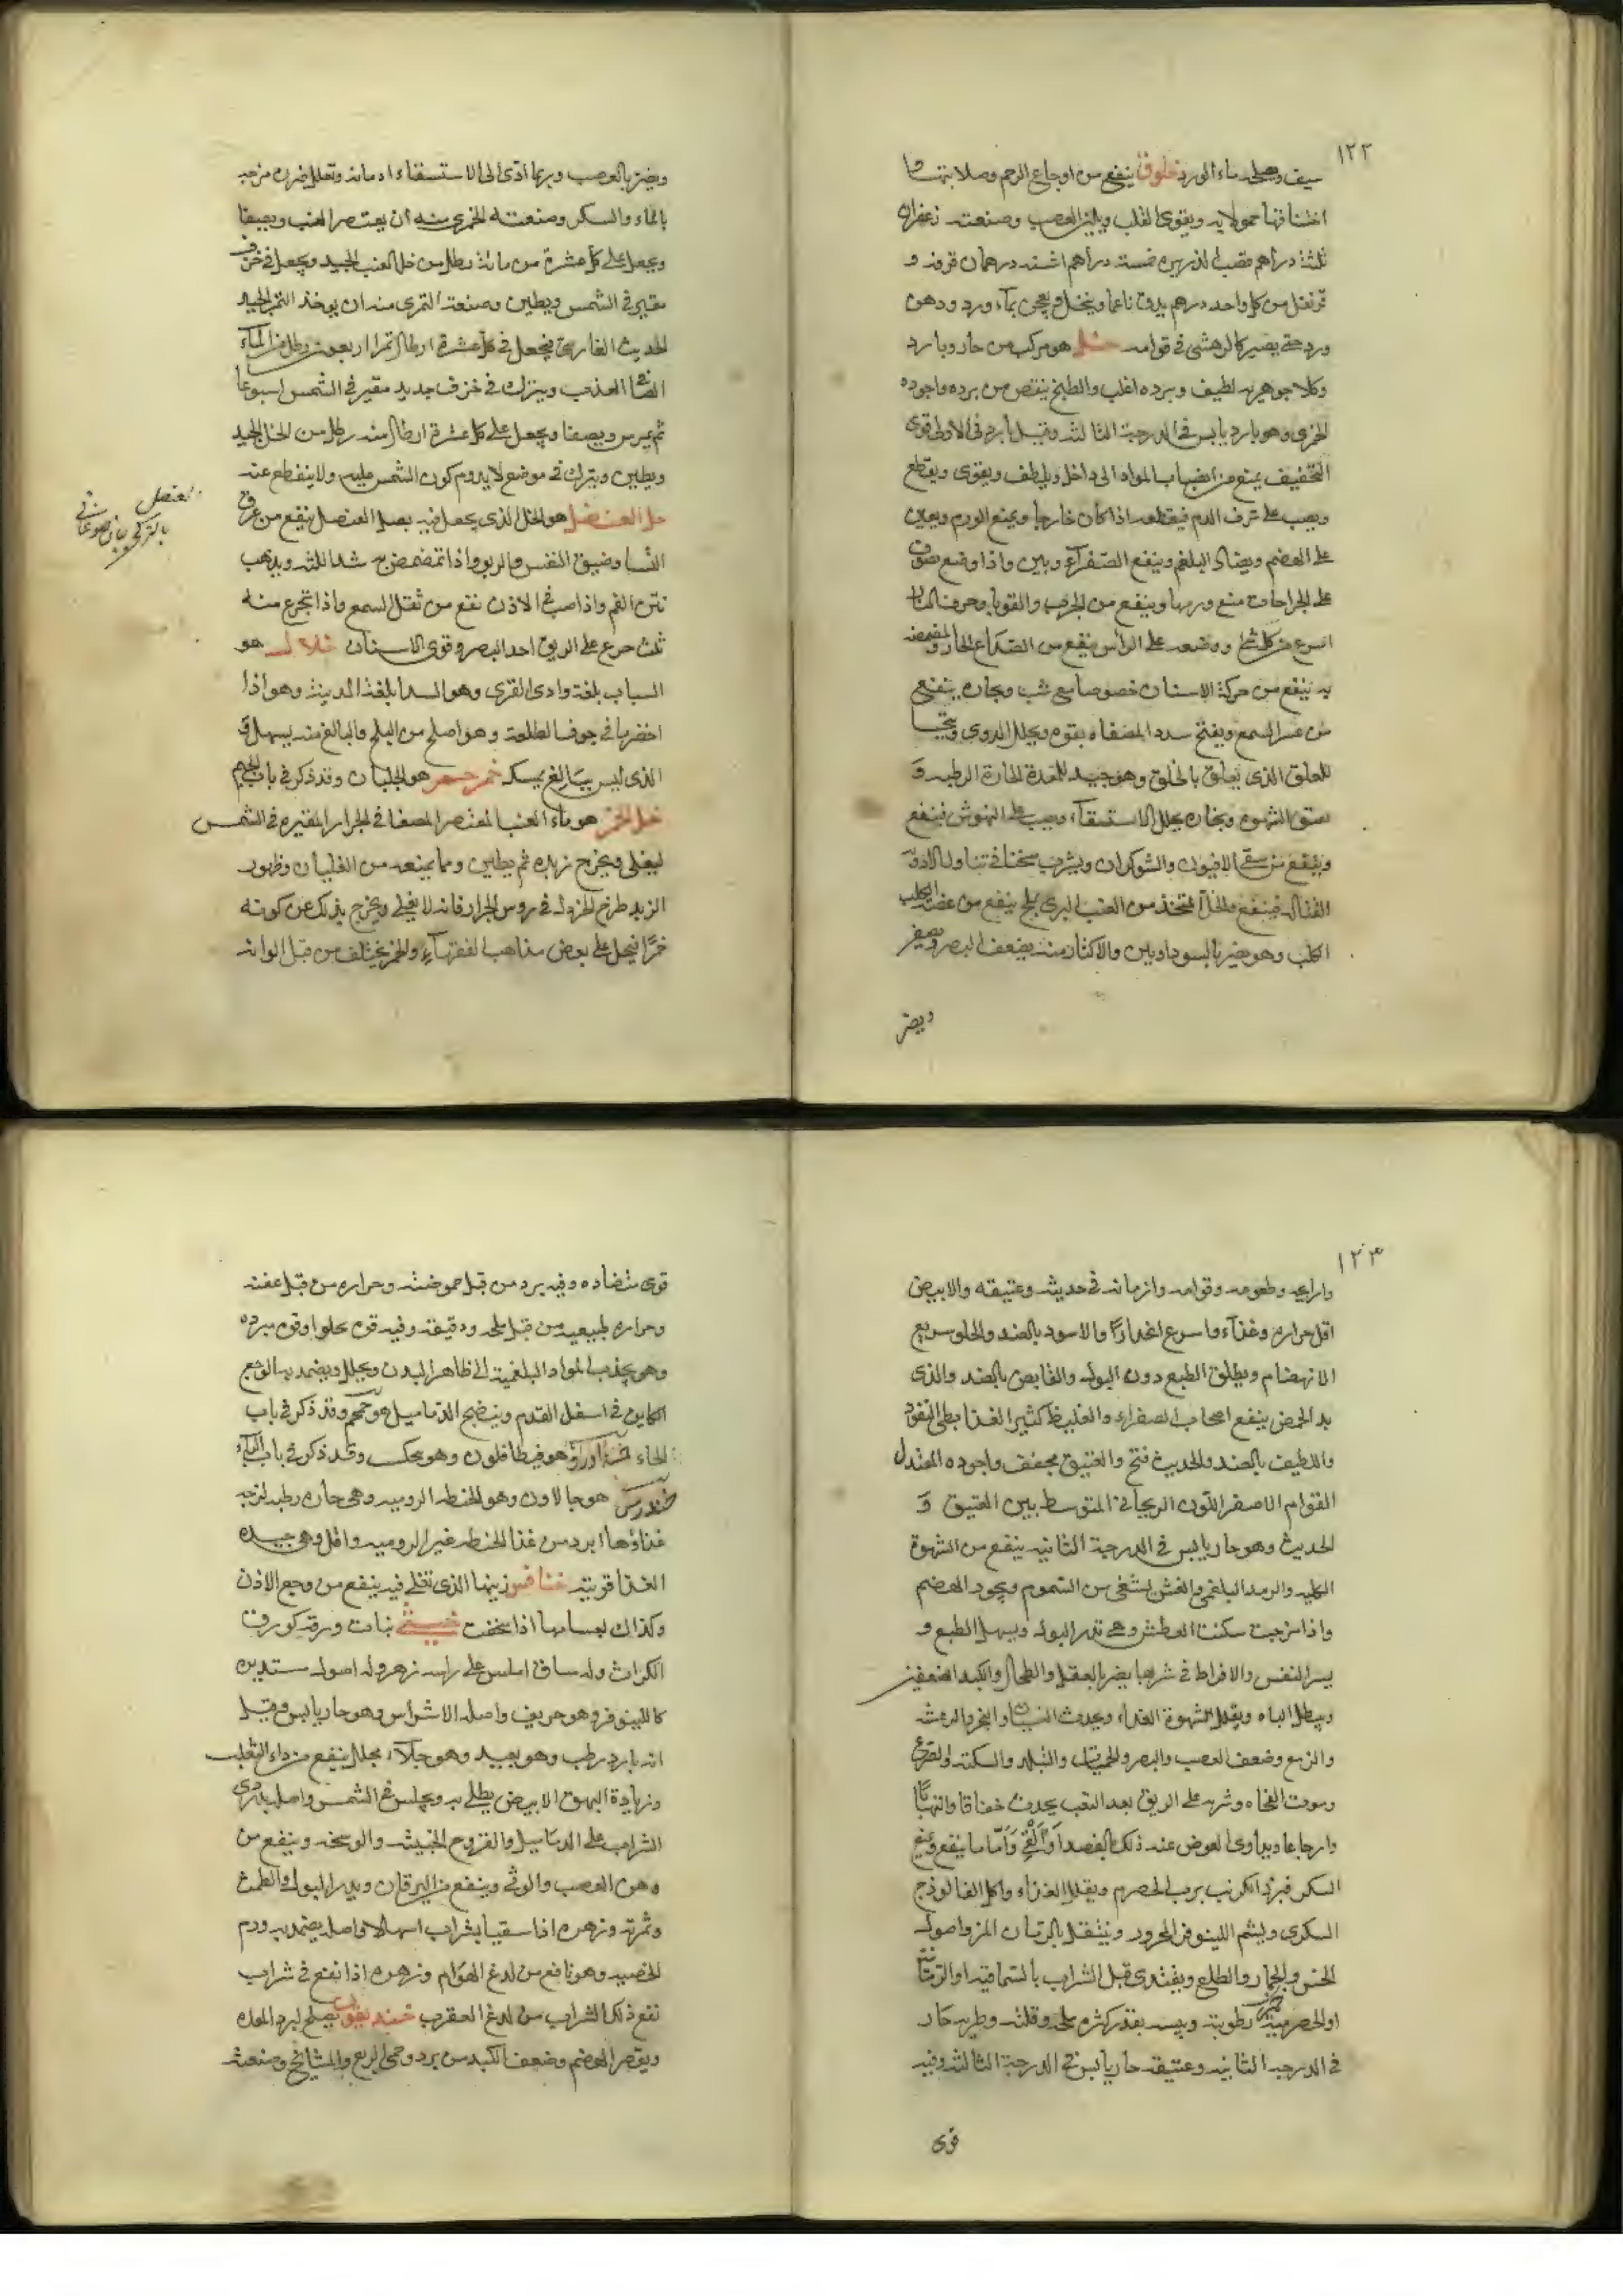 ١٢٢
سيف ويصلحه ماء الورد خلوق ينفع من اوجاع الرحم وصلابتها
اختناقها حمولا به ويقوى القلب ويلين العصب وصنعته زعفران
ثلثة دراهم قصب الذريره خمسة دراهم اشنه درهمان قرفه و
قرنفل من كل واحد درهم يدق ناعما وينخل ويعجن بماء ورد ودهن
ورد حتى يصير كالرهشى فى قوامه خل هو مركب من حار وبارد
وكلا جوهريه لطيف وبرده اغلب والطبخ ينقص من برده واجوده
الخمرى وهو بارد يابس فى الدرجة الثالثه وقيل بارد فى الاولى قوى
التخفيف يمنع من انصباب المواد الى داخل ويلطف ويقوى ويقطع
ويصب على نزف الدم فيقطعه اذا كان خارجا ويمنع الورم ويعين
على الهضم ويضاد البلغم وينفع الصفراء واذا وضع صوف
على الجراحات منع ورمها وينفع من الجرب والقوبا وحرق النار
اسرع من كل شئ ووضعه على الرأس ينفع من الصداع الحار والمضمضه
به ينفع من حركة الاسنان خصوصا مع شب وبخاره ينفع
من عسر السمع ويفتح سدد المصفاه بقوه ويحلل الدوى
للعلق الذى يتعلق بالحلق وهو جيد للمعدة الحارة الرطبه و
الشهوه وبخاره يحلل الاستسقاء ويصب على النهوش فينفع
وينفع من سقى الافيون والشوكران ويشرب سخنا فى تناول الادويه
القتاله فينفع والخل المتخذ من العنب البرى بملح ينفع من عضة الكلب
الكلب وهو يضر بالسوداويين والاكثار منه يضعف البصر ويصفر
ويضر
ويضر بالعصب وربما ادى الى الاستسقاء ادمانه وتعلل ضرره مزجه
بالماء والسكر وصنعته الخمرى منه ان يعتصر العنب ويصفا
ويجعل على كل عشرة من مائه رطل من خل العنب الجيد ويجعل فى خزف
مقير فى الشمس ويطين وصنعته التمرى منه ان يوخذ التمر الجيد
الحديث الفارسى فيجعل فى كل عشرة ارطال تمرا اربعون رطل من الماء
الصافى العذب ويترك فى خزف جديد مقير فى الشمس اسبوعا
ثم يمرس ويصفا ويجعل على كل عشرة ارطال منه رطل من الخل الجيد
ويطين ويترك فى موضع لا يدوم كون الشمس عليه ولا ينقطع عنه
خل العنصل هو الخل الذى يجعل فيه بصل العنصل ينفع من عرق
النسا وضيق النفس والربو واذا تمضمض به شد اللثه ويذهب
نتن الفم واذا صب فى الاذن نفع من ثقل السمع واذا تجرع منه
ثلث جرع على الريق احد البصر وقوى الاسنان خلال هو
السياب بلغة وادى القرى وهو السدا بلغة المدينه وهو اذا
اخضر ما فى جوف الطلعة وهو اصلح من البلح والبالغ منه يسهل و
الذى ليس ببالغ يمسك هو الجلبان وقد ذكر فى باب الجيم
خل الخمر هو ماء العنب المعتصر المصفا فى الجرار المقيره فى الشمس
ليغلى ويخرج زبده ثم يطين ومما يمنعه من الغليان وظهور
الزبد طرح الخردل فى روس الجرار فانه لا يغلى ويخرج بذلك عن كونه
خمرا فيحل على بعض مذاهب الفقهاء والخمر يختلف من قبل الوانه
العنصل
١٢٣
وارايحه وطعومه وقوامه وازمانه فى حديثه وعتيقه والابيض
اقل حراره وغذاء واسرع انحدارا والاسود بالضد والحلو سريع
الانهضام ويطلق الطبع دون البول والقابض بالضد والذى
به الحمض ينفع اصحاب الصفراء والغليظ كثير الغذا بطى النفوذ
واللطيف بالضد والحديث فتح والعتيق مجفف واجوده المعتدل
القوام الاصفر اللون الريحانى المتوسط بين العتيق و
الحديث وهو حار يابس فى الدرجة الثانيه ينفع من الشهوة
الكلبيه والرمد البلغمى والغشى يشفى من السموم ويجود الهضم
واذا مزجت سكنت العطش وهى تدر البول ويسهل الطبع و
يسر النفس والافراط فى شربها يضر بالعقل والطحال والكبد الضعيفين
ويبطل الباه ويقلل شهوة الغذاء ويحدث النسيان والبخر والرعشه
والزمع وضعف العصب والبصر والحميات والتبلد والسكته والصرع
وموت الفجاه وشربه على الريق بعد التعب يحدث خناقا والتهابا
وارجاعا ويداوى العوض عند ذلك بالفصد او القى واما ما ينفع ويمنع
السكر فبزر الكرنب برب الحصرم ويقلل الغذاء واكل الفالوذج
السكرى ويشم اللينوفر المحرور ويتنقل بالرمان المز واصول
الخس والجمار والطلع ويغتدى قبل الشراب بالسماقيه او الرمانيه
او الحصرميه رطوبته ويبسه بقدر كثره ملحه وقلته وطريه حار
فى الدرجه الثانيه وعتيقه حار يابس فى الدرجة الثالثه وفيه
قوى
قوى متضاده وفيه برد من قبل حموضته وحراره من قبل عفنه
وحراره طبيعيه من قبل ملحه ودقيقه وفيه قوه تجلوا وقوه مبرده
وهو يجذب المواد البلغميه الى ظاهر البدن ويحلل ويضمد به الوجع
الكاين فى اسفل القدم وينضج الدماميل وقد ذكر فى باب
الحاء هو فيطافلون وقد ذكر فى باب الباء
خندروس هو جالاون وهو الحنطه الروميه وهى حاره رطبه لزجه
غذاؤها ابرد من غذا الحنطه غير الروميه واقل وهى جيده
الغذا قريته خنافس زيتها الذى تغلى فيه ينفع من وجع الاذن
وكذلك اجسامها اذا سحقت خنثى نبات ورقه كورق
الكراث وله ساق املس على راسه زهر وله اصول مستديره
كاللينوفر وهو حريف واصله الاشراس وهو حار يابس وقيل
انه بارد رطب وهو بعيد وهو جلاء محلل ينفع من داء الثعلب
وزيادة البهق الابيض يطلى به ويجلس فى الشمس واصله بدردى
الشراب على الدماميل والقروح الخبيثه والوسخه وينفع من
وهن العصب والوثى وينفع من اليرقان ويدر البول والطمث
وثمرته وزهره اذا سقيا بشراب اسهلا واصله يضمد به ورم
الخصيه وهو نافع من لدغ الهوام وزهره اذا نقع فى شراب
نفع ذلك الشراب من لدغ العقرب خنديقون يصلح لبرد المعده
ويقصر الهضم وضعف الكبد من برد وحمى الربع والمشايخ وصنعته